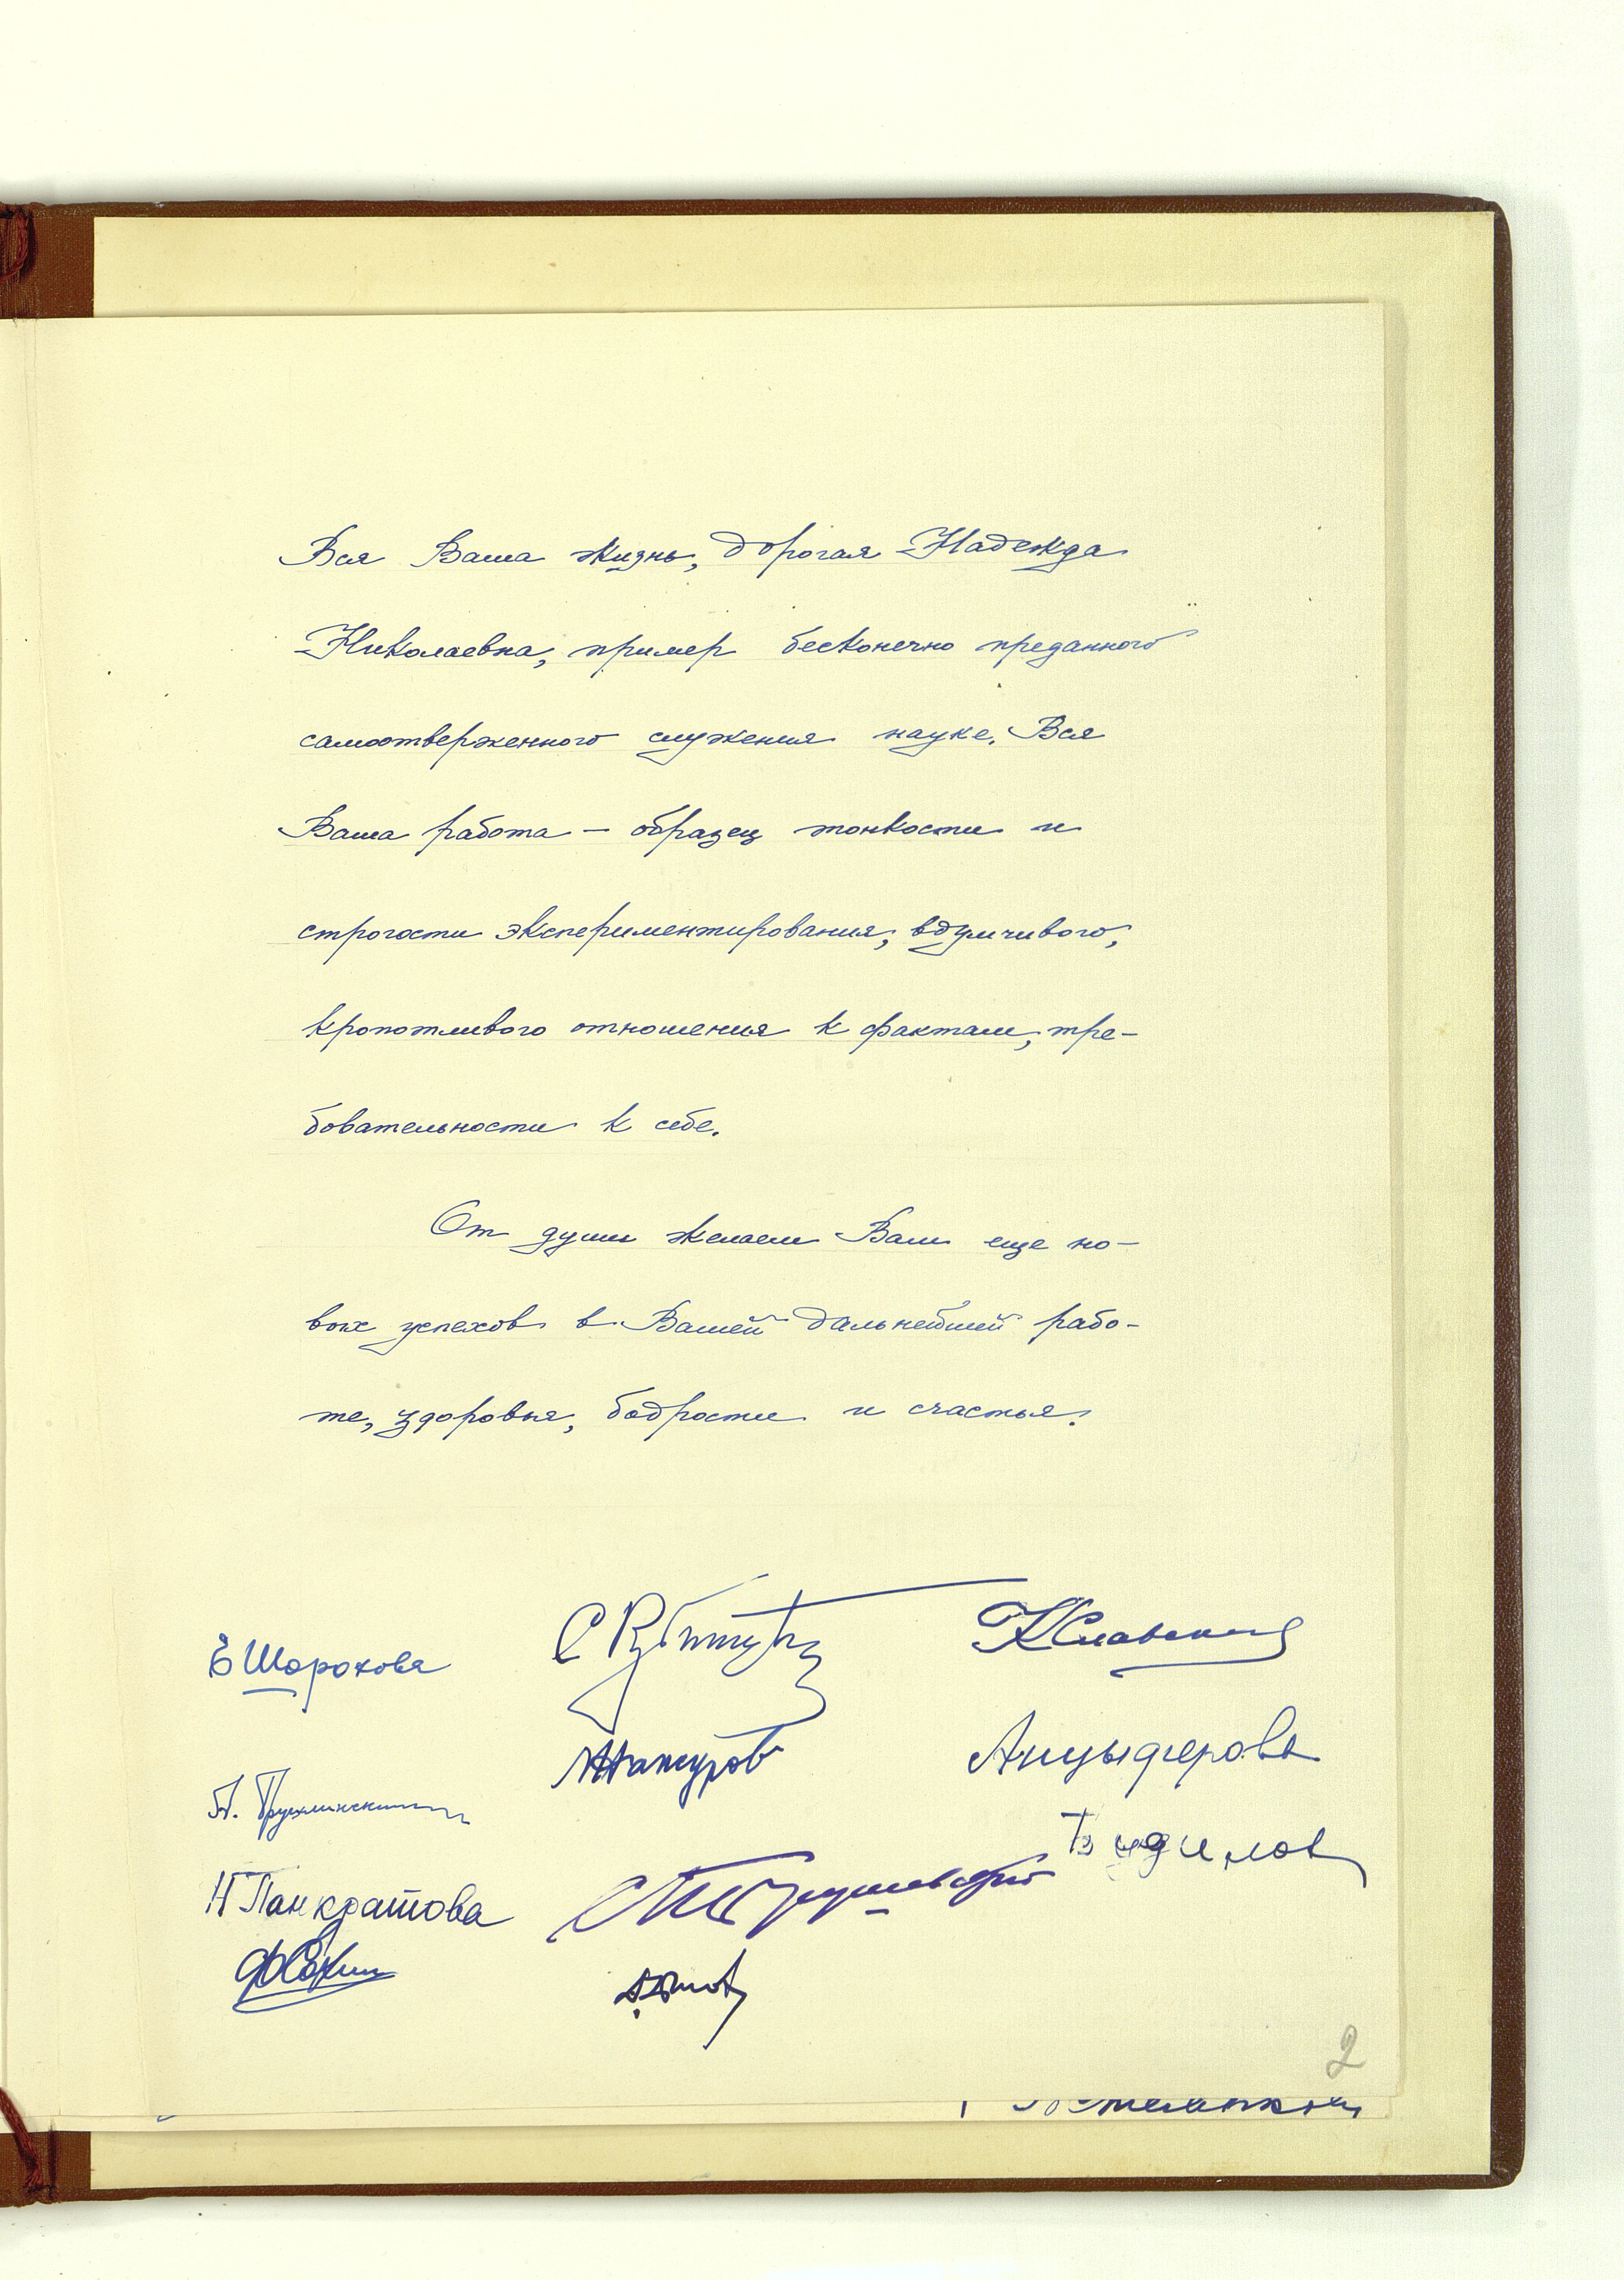 Вся Ваша жизнь, дорогая Надежда
Николаевна, пример бесконечно преданного
самоотверженного служения науке. Вся
Ваша работа — образец тонкости и
строгости экспериментирования, вдумчивого,
кропотливого отношения к фактам, тре-
бовательности к себе.
От души желаем Вам еще но-
вых успехов в Вашей дальнейшей рабо-
те, здоровья, бодрости и счастья.
Е Шорохова
С Рубинштейн
К Славская
Анцыферова
Н Панкратова
2